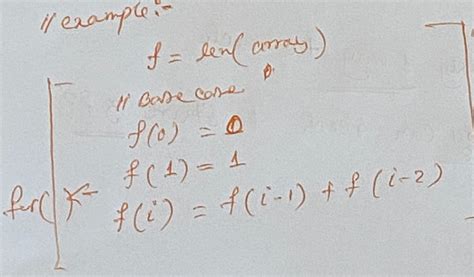 // example:-
f = len(array)
// Base case
f(0) = 0
f(1) = 1
for( ) f(i) = f(i-1) + f(i-2)